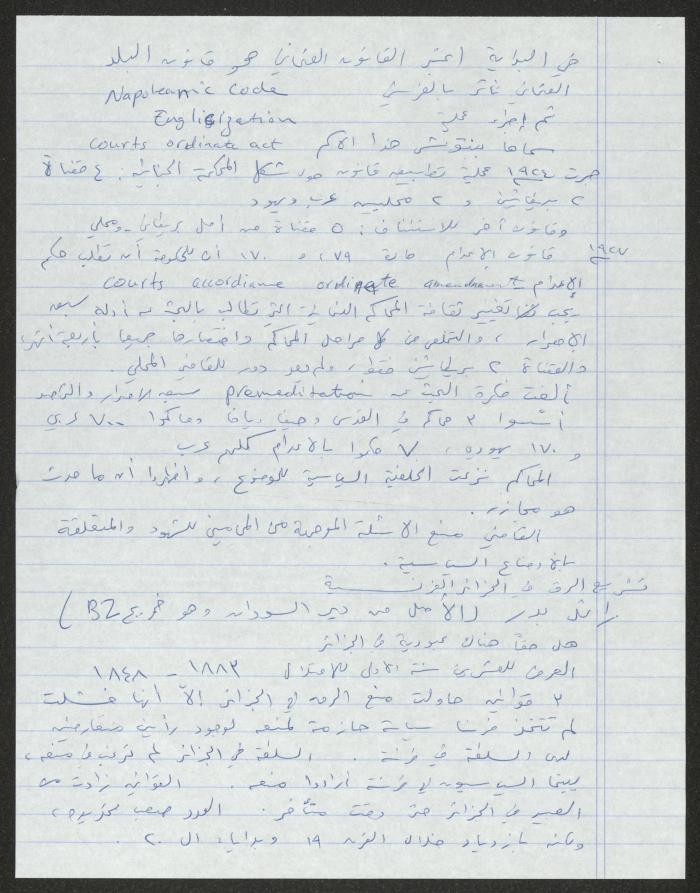 في البداية اعتبر القانون العثماني هو قانون البلد
العثماني تأثر بالفرنسي Napoleanic Code
تم إجراء عملية Englisization
سماها بنتوتش هذا الاسم courts ordinate act
جرت ١٩٢٤ عملية تطبيق قانون حول شكل المحكمة الجنائية: ٤ قضاة
٢ بريطانيين و ٢ محليين عرب ويهود
وقانون آخر للاستئناف: ٥ قضاة من أصل بريطاني ومحلي
١٩٢٧ قانون الإعدام مادة ٧٩، و ١٧٠ أن للحكومة أن تطلب حكم
الإعدام courts accordiane ordinate amendment
يجب تغيير ثقافة المحاكم التي تطالب بالبحث عن أدلة سبق
الإصرار، والتخلص من مراحل المحاكم واختصارها جميعا بأربعة أشهر
والقضاة ٢ بريطانيين فقط، ولم يعد دور للقاضي المحلي.
ألغت فكرة البحث عن premeditation سبق الإصرار والترصد
أنشئوا ٣ محاكم في القدس وحيفا ويافا وحاكموا ٧٠٠ عربي
و ١٧٠ يهودي، ٧ حكموا بالإعدام كلهم عرب
المحاكم نزعت الخلفية السياسية للموضوع، واظهروا أن ما حدث
هو مجازر.
القاضي منع الاسئلة الموجهة من المحامين للشهود والمتعلقة
بالأوضاع السياسية.
تشريع الرق في الجزائر الفرنسية
رائل بدر (الأصل من دير السودان وهو خريج BZ)
هل حقا هناك عبودية في الجزائر
العرض للعشرين سنة الاولى للاحتلال ١٨٨٣ - ١٨٤٨
٣ قوانين حاولت منع الرق في الجزائر إلا أنها فشلت
لم تتخذ فرنسا سياسة حازمة لمنعه لوجود رأيين متعارضين
لدى السلطة في فرنسة. السلطة في الجزائر لم ترغب في منعه،
بينما السياسيون في فرنسة أرادوا منعه. القوانين زادت من
العبيد في الجزائر حتى وقت متأخر. العدد صعب تحديده،
وكانه بازدياد خلال القرن ١٩ وبدايات ال ٢٠.